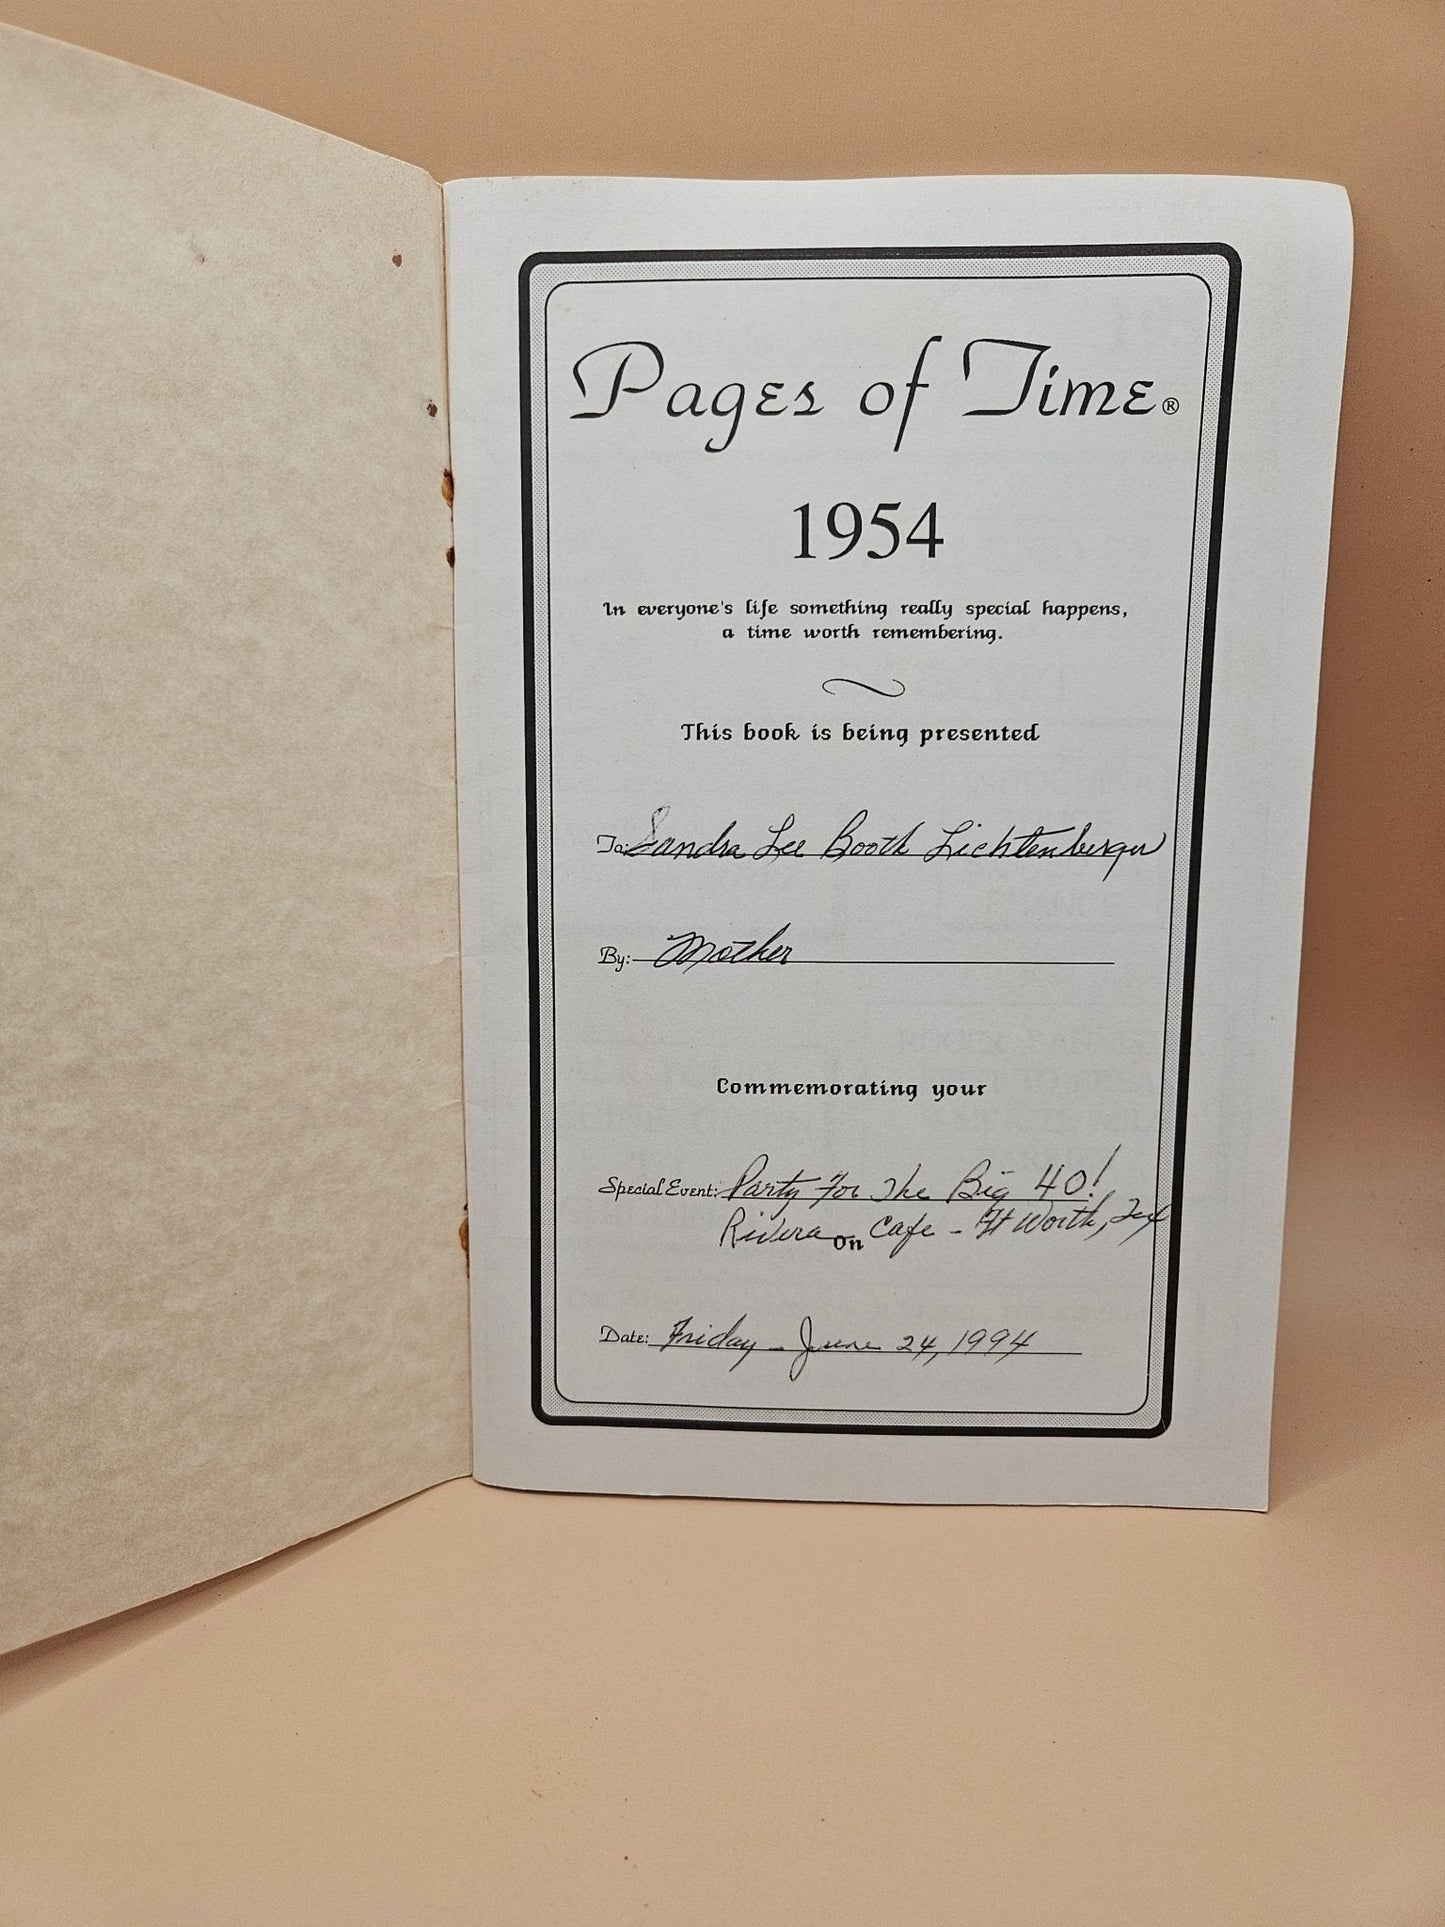 Pages of Time®
1954
In everyone's life something really special happens,
a time worth remembering.
This book is being presented
To: Sandra Lee Booth Lichtenberger
By: Mother
Commemorating your
Special Event: Party For The Big 40!
Rivera Cafe - Ft Worth, Tex
On
Date: Friday - June 24, 1994